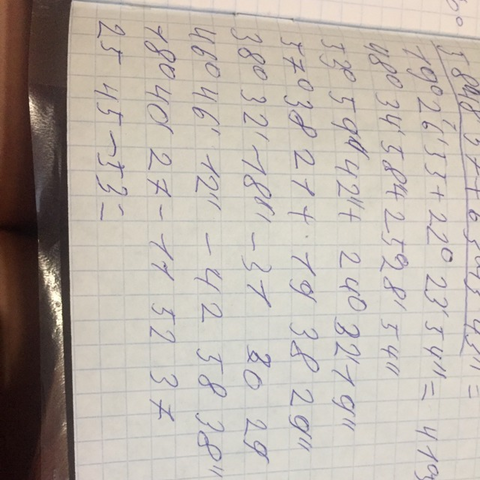 19° 26' 33 + 22° 23' 54" = 419
48° 34' 58" + 25° 28' 54"
53° 59' 42" + 24° 32' 19"
57° 38 21 + 19 38 29"
38° 32' 18" - 31 20 29
46° 46' 12" - 42 58 38"
78° 40' 27 - 11 52 37
25 45 - 33 =